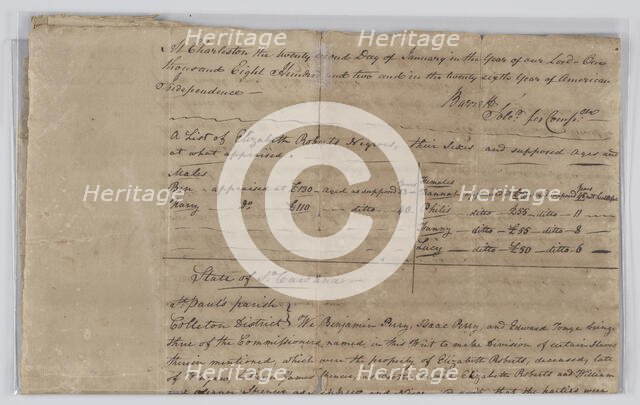 At Charleston the twenty second Day of January in the Year of our Lord One
thousand Eight Hundred and two and in the twenty sixth Year of American
Independence —
A List of Elizabeth Roberts Negroes, their Sexes and supposed Ages and
at what appraised.
Males
Ben - appraised at £130 - aged as supposed
Harry do £110 - ditto - 40
Females
Hannah
Philis - ditto - £55 - ditto - 11
Fanny - ditto - £55 - ditto - 8
Lucy - ditto - £50 - ditto - 6
State of So. Carolina
St. Paul's parish
Colleton District } We Benjamin Perry, Isaac Perry, and Edward Tonge being
three of the Commissioners named in this Writ to make Division of certain Slaves
therein mentioned, which were the property of Elizabeth Roberts, deceased, late
of James Spencer, Elizabeth Roberts and William
Spencer that the parties were
Heritage
Heritage
Heritage
Heritage
Heritage
Heritage
Heritage
Heritage
©